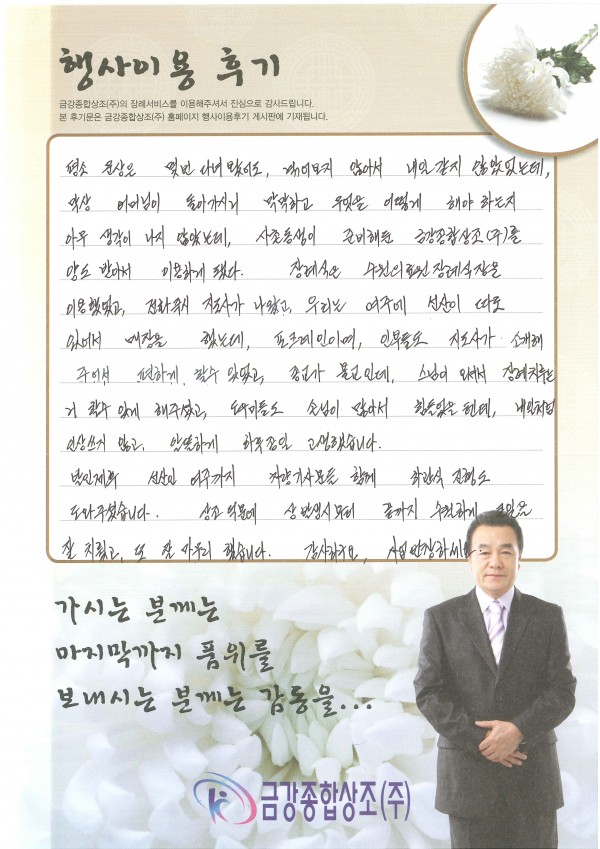 행사이용 후기
금강종합상조(주)의 장례서비스를 이용해주셔서 진심으로 감사드립니다.
본 후기문은 금강종합상조(주) 홈페이지 행사이용후기 게시판에 기재됩니다.
평소 문상은 몇번 다녀 봤어도, 겪어보지 않아서 내일 같지 않았었는데,
막상 어머님이 돌아가시니 막막하고 무엇을 어떻게 해야 하는지
아무 생각이 나지 않았는데, 사촌동생이 준비해둔 금강종합상조(주)를
양도 받아서 이용하게 됐다. 장례식은 수원의료원장례식장을
이용했었고, 전화주셔 지도사가 나왔고, 우리는 여주에 선산이 따로
있어서 매장을 했는데, 포크레인이며, 인부들도 지도사가 소개해
주어서 편하게 할수 있었고, 종교가 불교인데, 스님이 오셔서 장례치루는
거 할수 있게 해주셨고, 도우미들도 손님이 많아서 힘들었을텐데, 내일처럼
인상쓰지 않고, 하루종일 고생했습니다.
발인제와 선산인 여주까지 차량기사분들 함께 하관식 진행도
도와주셨습니다. 상조 덕분에 상 발생시부터 끝까지 수월하게
잘 치뤘고, 또 잘 마무리 했습니다. 감사하고요, 사업번창하세요
가시는 분께는
마지막까지 품위를
보내시는 분께는 감동을...
금강종합상조(주)